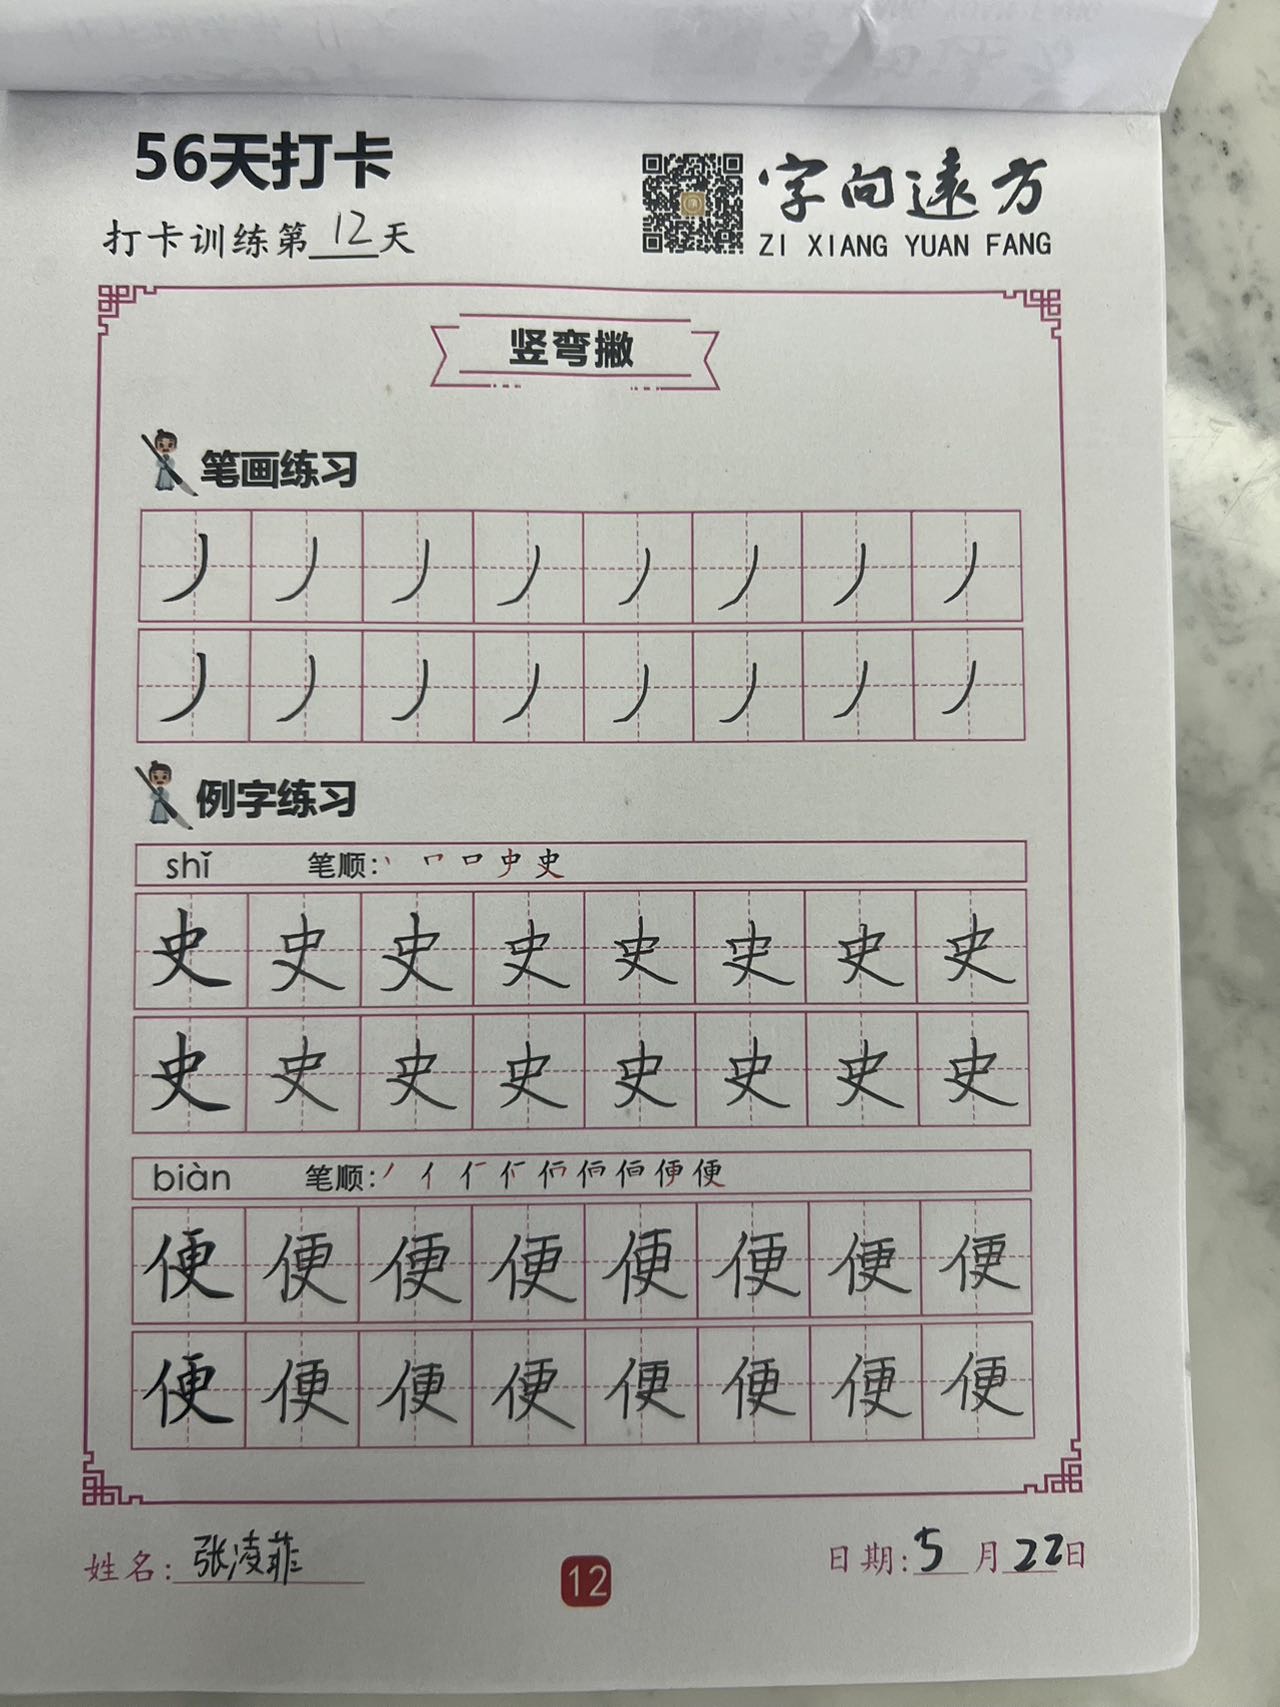 56天打卡
打卡训练第12天
字向遠方
ZI XIANG YUAN FANG
竖弯撇
笔画练习
丿丿丿丿丿丿丿丿
丿丿丿丿丿丿丿丿
例字练习
shǐ 笔顺: 丶 𠃍 口 史 史
史史史史史史史史
史史史史史史史史
biàn 笔顺: 丿 亻 便 便
便便便便便便便便
便便便便便便便便
姓名: 张凌菲
12
日期: 5月22日